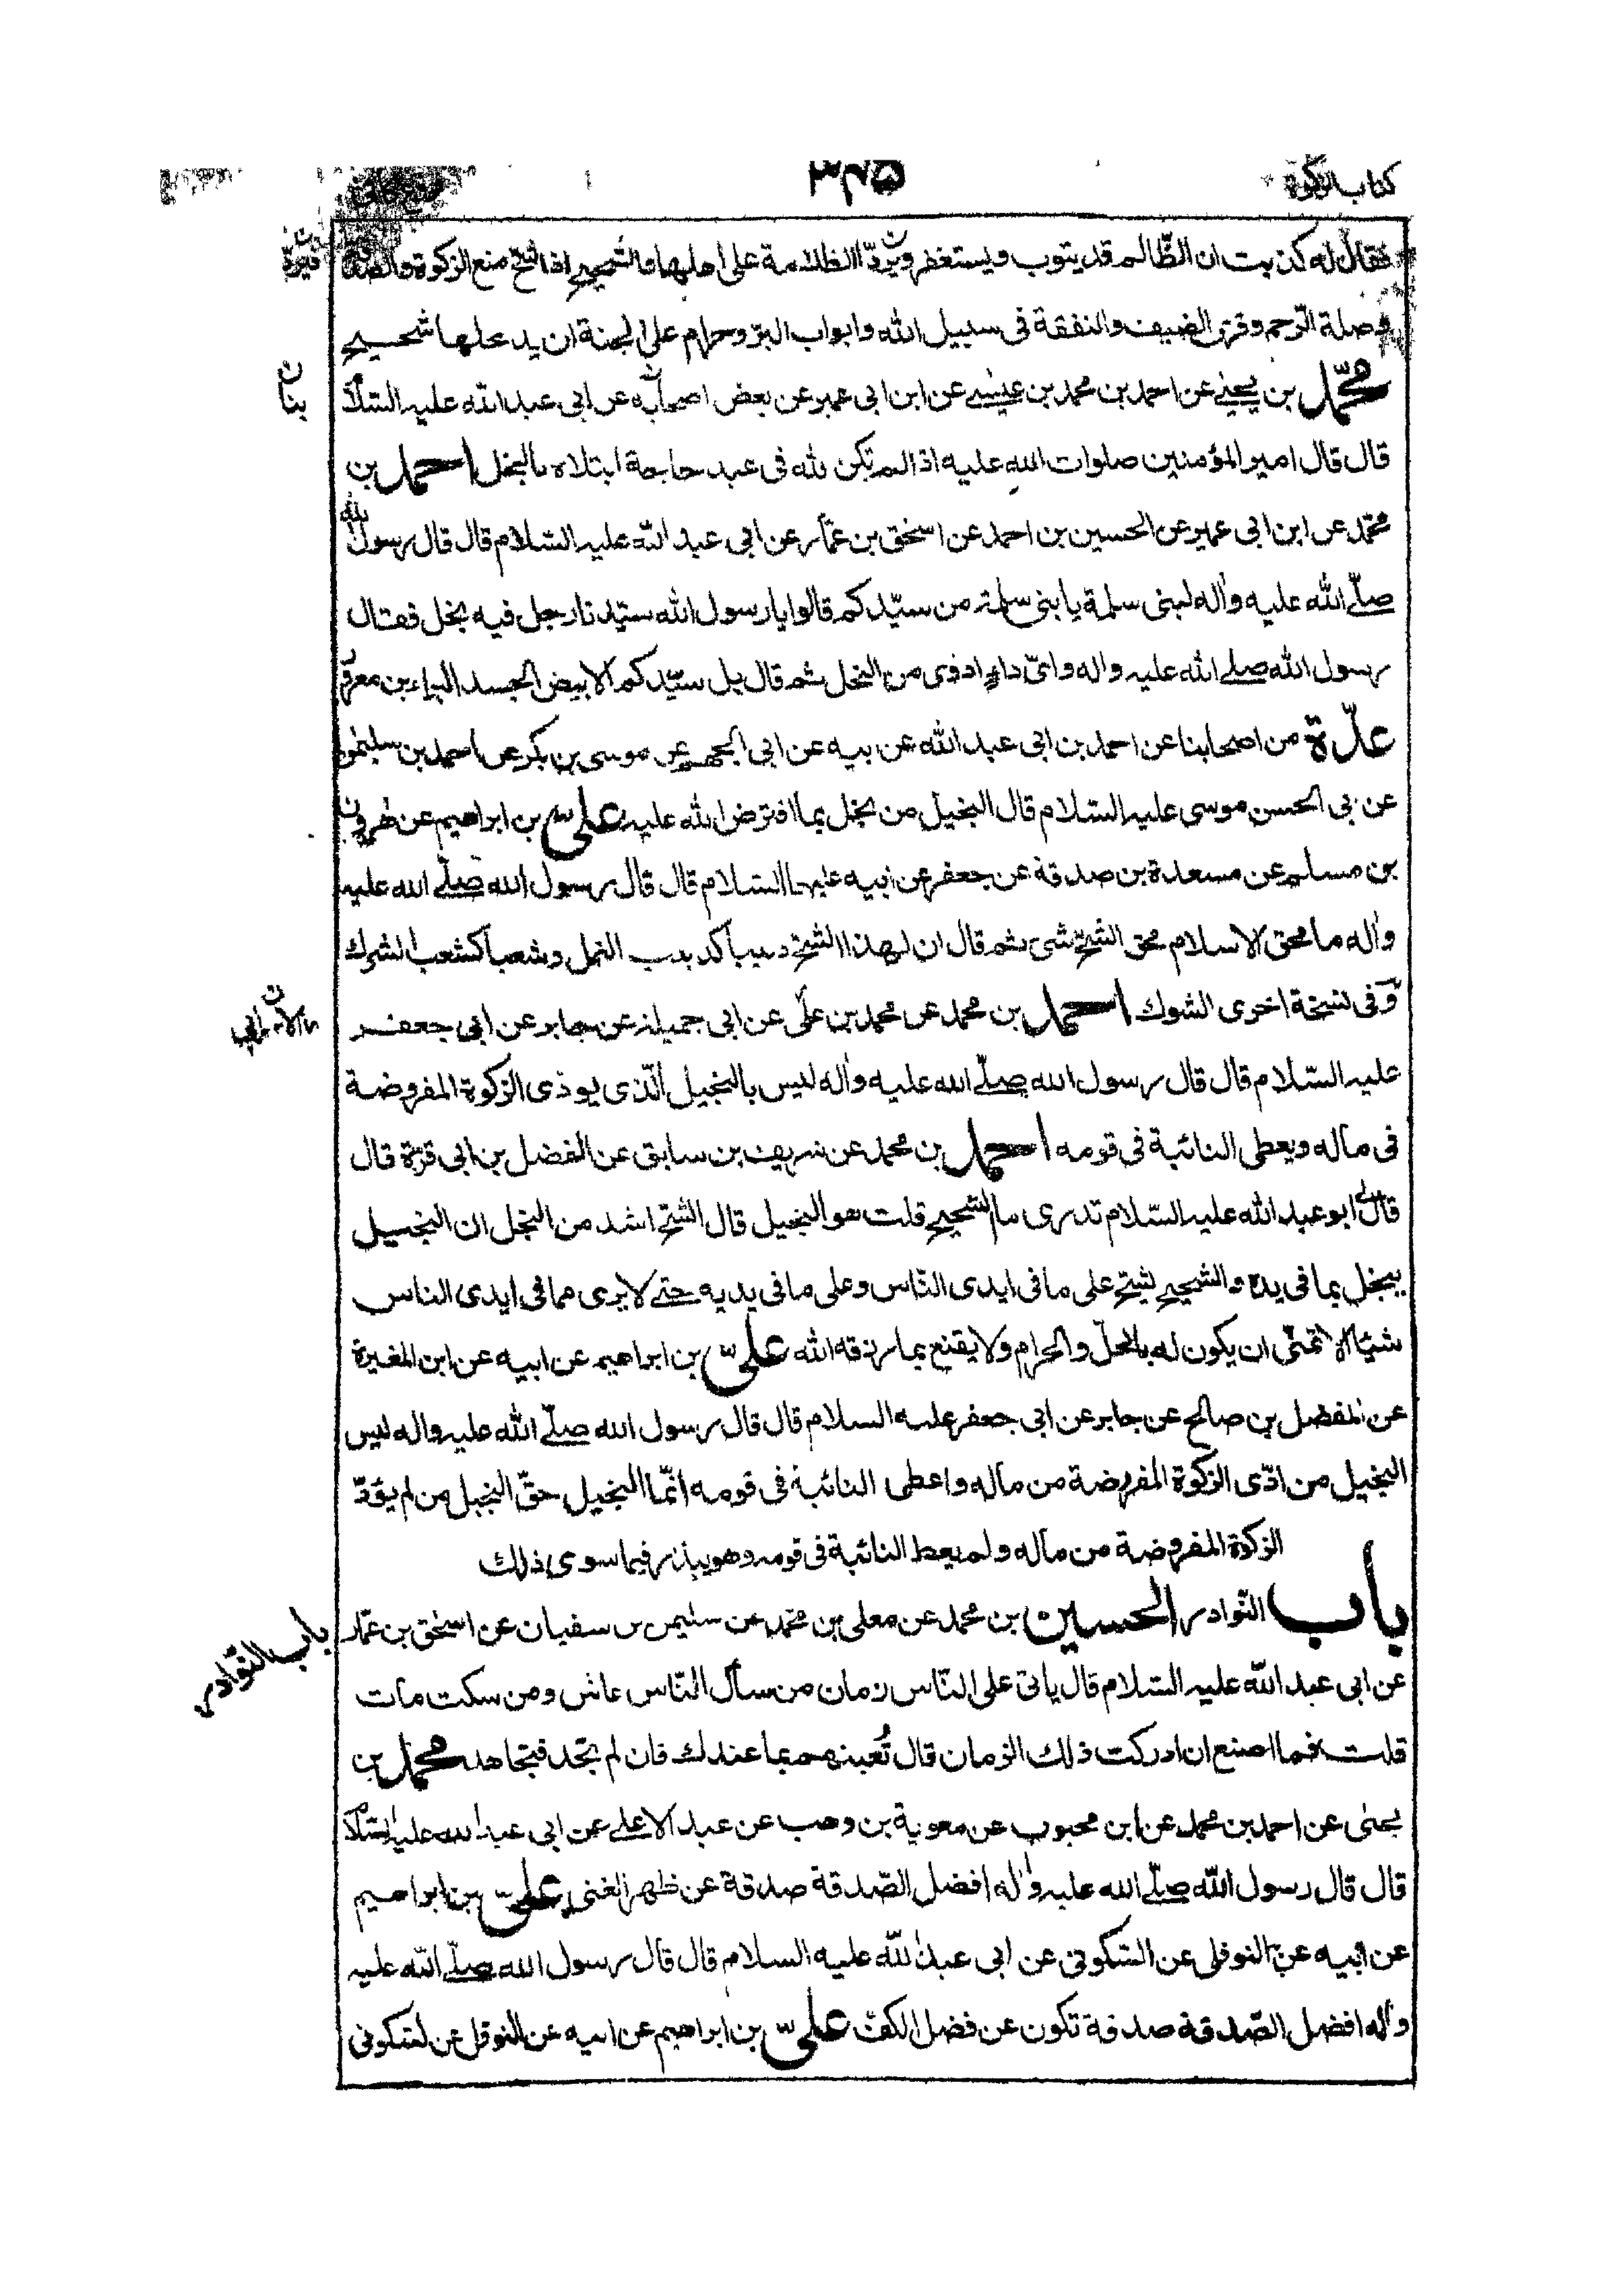 كتاب الزكوة
فقال له كذبت ان الظالم قد يتوب ويستغفر ويردّ الظلامة على اهلها والشحيح اذا شحّ منع الزكوة والصدقة
وصلة الرّحم وقرى الضيف والنفقة فى سبيل الله وابواب البرّ وحرام على الجنة ان يدخلها شحيح
محمّد بن يحيى عن احمد بن محمد بن عيسى عن ابن ابى عمير عن بعض اصحابه عن ابى عبد الله عليه السّلام
قال قال امير المؤمنين صلوات الله عليه اذا لم تكن لله فى عبد حاجة ابتلاه بالبخل احمد بن
محمّد عن ابن ابى عمير عن الحسين بن احمد عن اسحق بن عمّار عن ابى عبد الله عليه السّلام قال قال رسول الله
صلّى الله عليه واله لبنى سلمة يا بنى سلمة من سيّدكم قالوا يا رسول الله سيّدنا رجل فيه بخل فقال
رسول الله صلى الله عليه واله واىّ داء ادوى من البخل ثم قال بل سيّدكم الابيض الجسد البراء بن معرور
عدّة من اصحابنا عن احمد بن ابى عبد الله عن ابيه عن ابى الجهم عن موسى بن بكر عن احمد بن سليمن
عن ابى الحسن موسى عليه السّلام قال البخيل من بخل بما افترض الله عليه علىّ بن ابراهيم عن هرون
بن مسلم عن مسعدة بن صدقة عن جعفر عن ابيه عليهما السّلام قال قال رسول الله صلّى الله عليه
واله ما محق الاسلام محق الشحّ شىء ثم قال ان لهذا الشحّ دبيباً كدبيب النمل وشعباً كشعب الشرك
وفى نسخة اخرى الشوك احمد بن محمد عن محمد بن علّى عن ابى جميلة عن جابر عن ابى جعفر
عليه السّلام قال قال رسول الله صلّى الله عليه واله ليس بالبخيل الّذى يودّى الزكوة المفروضة
فى ماله ويعطى النائبة فى قومه احمد بن محمد عن شريف بن سابق عن الفضل بن ابى قرّة قال
قال لى ابو عبد الله عليه السّلام تدرى ما الشحيح قلت هو البخيل قال الشحّ اشد من البخل ان البخيل
يبخل بما فى يده والشحيح يشحّ على ما فى ايدى النّاس وعلى ما فى يديه حتى لا يرى مما فى ايدى الناس
شيئا الا تمنّى ان يكون له بالحلّ والحرام ولا يقنع بما رزقه الله علىّ بن ابراهيم عن ابيه عن ابن المغيرة
عن المفضل بن صالح عن جابر عن ابى جعفر عليه السلام قال قال رسول الله صلّى الله عليه واله ليس
البخيل من ادّى الزكوة المفروضة من ماله واعطى النائبة فى قومه انّما البخيل حقّ البخيل من لم يؤدّ
الزكوة المفروضة من ماله ولم يعط النائبة فى قومه وهو يبذر فيما سوى ذلك
باب النّوادر الحسين بن محمد عن معلى بن محمّد عن سليمن بن سفيان عن اسحق بن عمّار
باب النّوادر
عن ابى عبد الله عليه السّلام قال ياتى على النّاس زمان من سأل النّاس عاش ومن سكت مات
قلت فما اصنع ان ادركت ذلك الزمان قال تُعينهم بما عندك فان لم تجد فتجاهد محمّد بن
يحيى عن احمد بن محمد عن ابن محبوب عن معوية بن وهب عن عبد الاعلى عن ابى عبد الله عليه السّلام
قال قال رسول الله صلّى الله عليه واله افضل الصّدقة صدقة عن ظهر الغنى علىّ بن ابراهيم
عن ابيه عن النوفلى عن السّكونى عن ابى عبد الله عليه السلام قال قال رسول الله صلّى الله عليه
واله افضل الصّدقة صدقة تكون عن فضل الكفّ علىّ بن ابراهيم عن ابيه عن النوفلى عن السّكونى